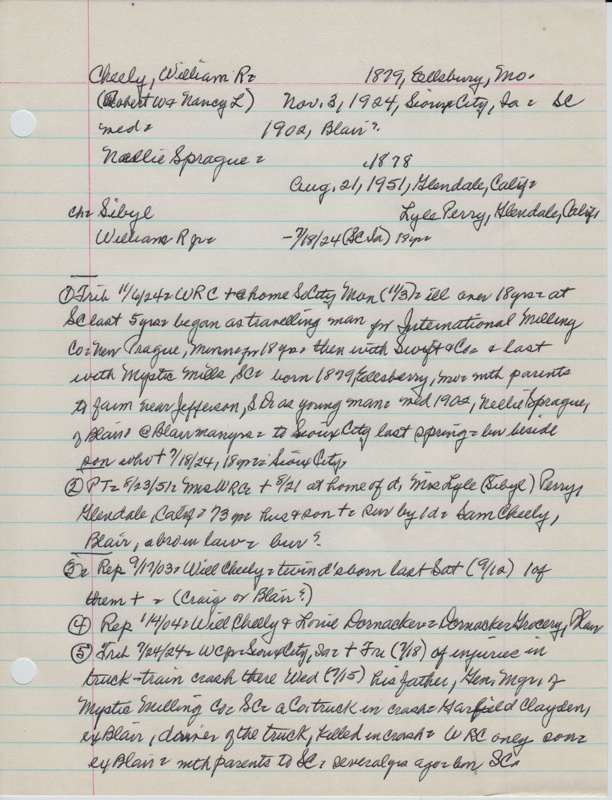 Cheely, William R= 1879, Eellsbury, Mo.
(Robert W & Nancy L) Nov. 3, 1924, Sioux City, Ia = SC
med = 1902, Blair?.
Nellie Sprague = c1878
Aug. 21, 1951, Glendale, Calif=
ch= Sibyl Lyle Perry, Glendale, Calif.
William R jr= - 7/18/24 (SC Ia) 18 yr=
① Trib 11/6/24= WRC + @ home So City Mon (11/3)= ill over 18 yrs= at
SC last 5 yrs= began as travelling man for International Milling
Co= New Prague, Minn= for 18 yrs= then with Swift & Co= & last
with Mystic Mills, SC= born 1879, Eellsberry, Mo= with parents
to farm near Jefferson, S D as young man= med 1902, Nellie Sprague,
of Blair= @ Blair many yrs= to Sioux City last spring= bur beside
son who + 7/18/24, 18 yr= Sioux City,
② PT= 8/23/51= Mrs WRC= + 8/21 at home of d, Mrs Lyle (Sibyl) Perry,
Glendale, Calif= 73 yr= hus & son += sur by 1 d= Sam Cheely,
Blair, a bro in law= bur?.
③= Rep 9/17/03= Will Cheely= twin d's born last Sat (9/12) 1 of
them + = (Craig or Blair?)
④ Rep 1/14/04= Will Cheely & Louie Dornacker= Dornacker Grocery, Blair
⑤ Trib 7/24/24= WCjr= Sioux City, Ia= + Fri (7/18) of injuries in
truck-train crash there Wed (7/15) his father, Gen. Mgr. of
Mystic Milling Co= SC= a Co. truck in crash= Garfield Clayden,
ex Blair, driver of the truck, killed in crash= WRC only son=
ex Blair= with parents to SC= several yrs ago= bur SC.